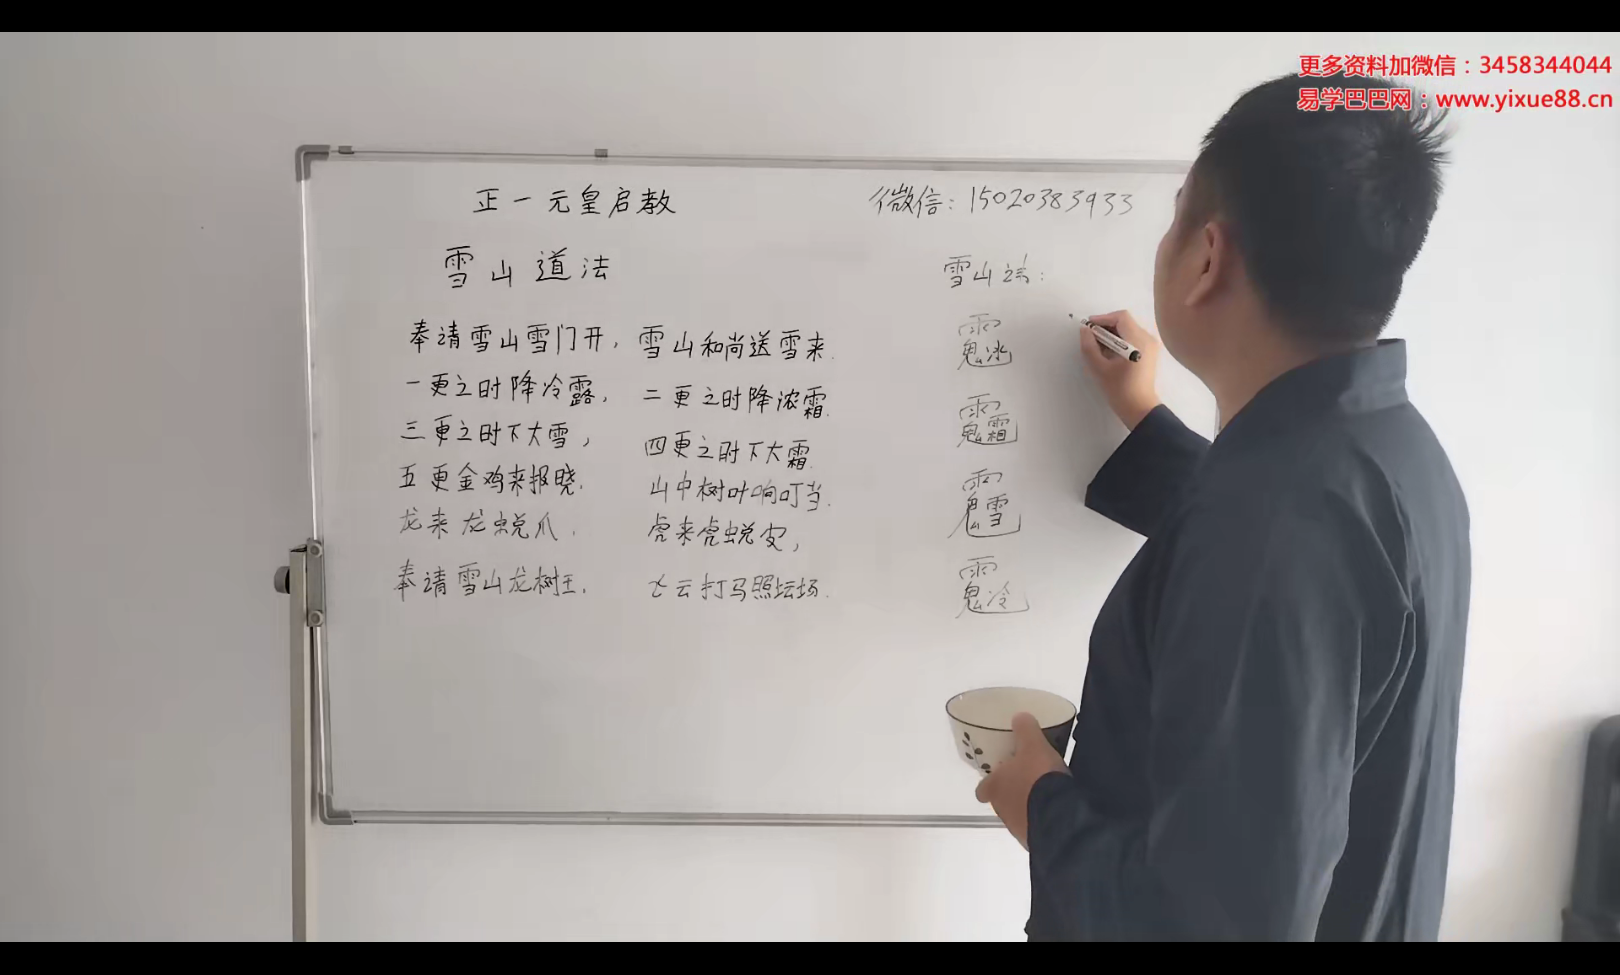 更多资料加微信：3458344044
易学巴巴网：www.yixue88.cn
正一元皇启教
微信：15020383933
雪山道法
奉请雪山雪门开，雪山和尚送雪来.
一更之时降冷露，二更之时降浓霜.
三更之时下大雪，四更之时下大霜.
五更金鸡来报晓.山中树叶响叮当.
龙来龙蜕爪.虎来虎蜕皮，
奉请雪山龙树王.飞云打马照坛场.
雪山讳：